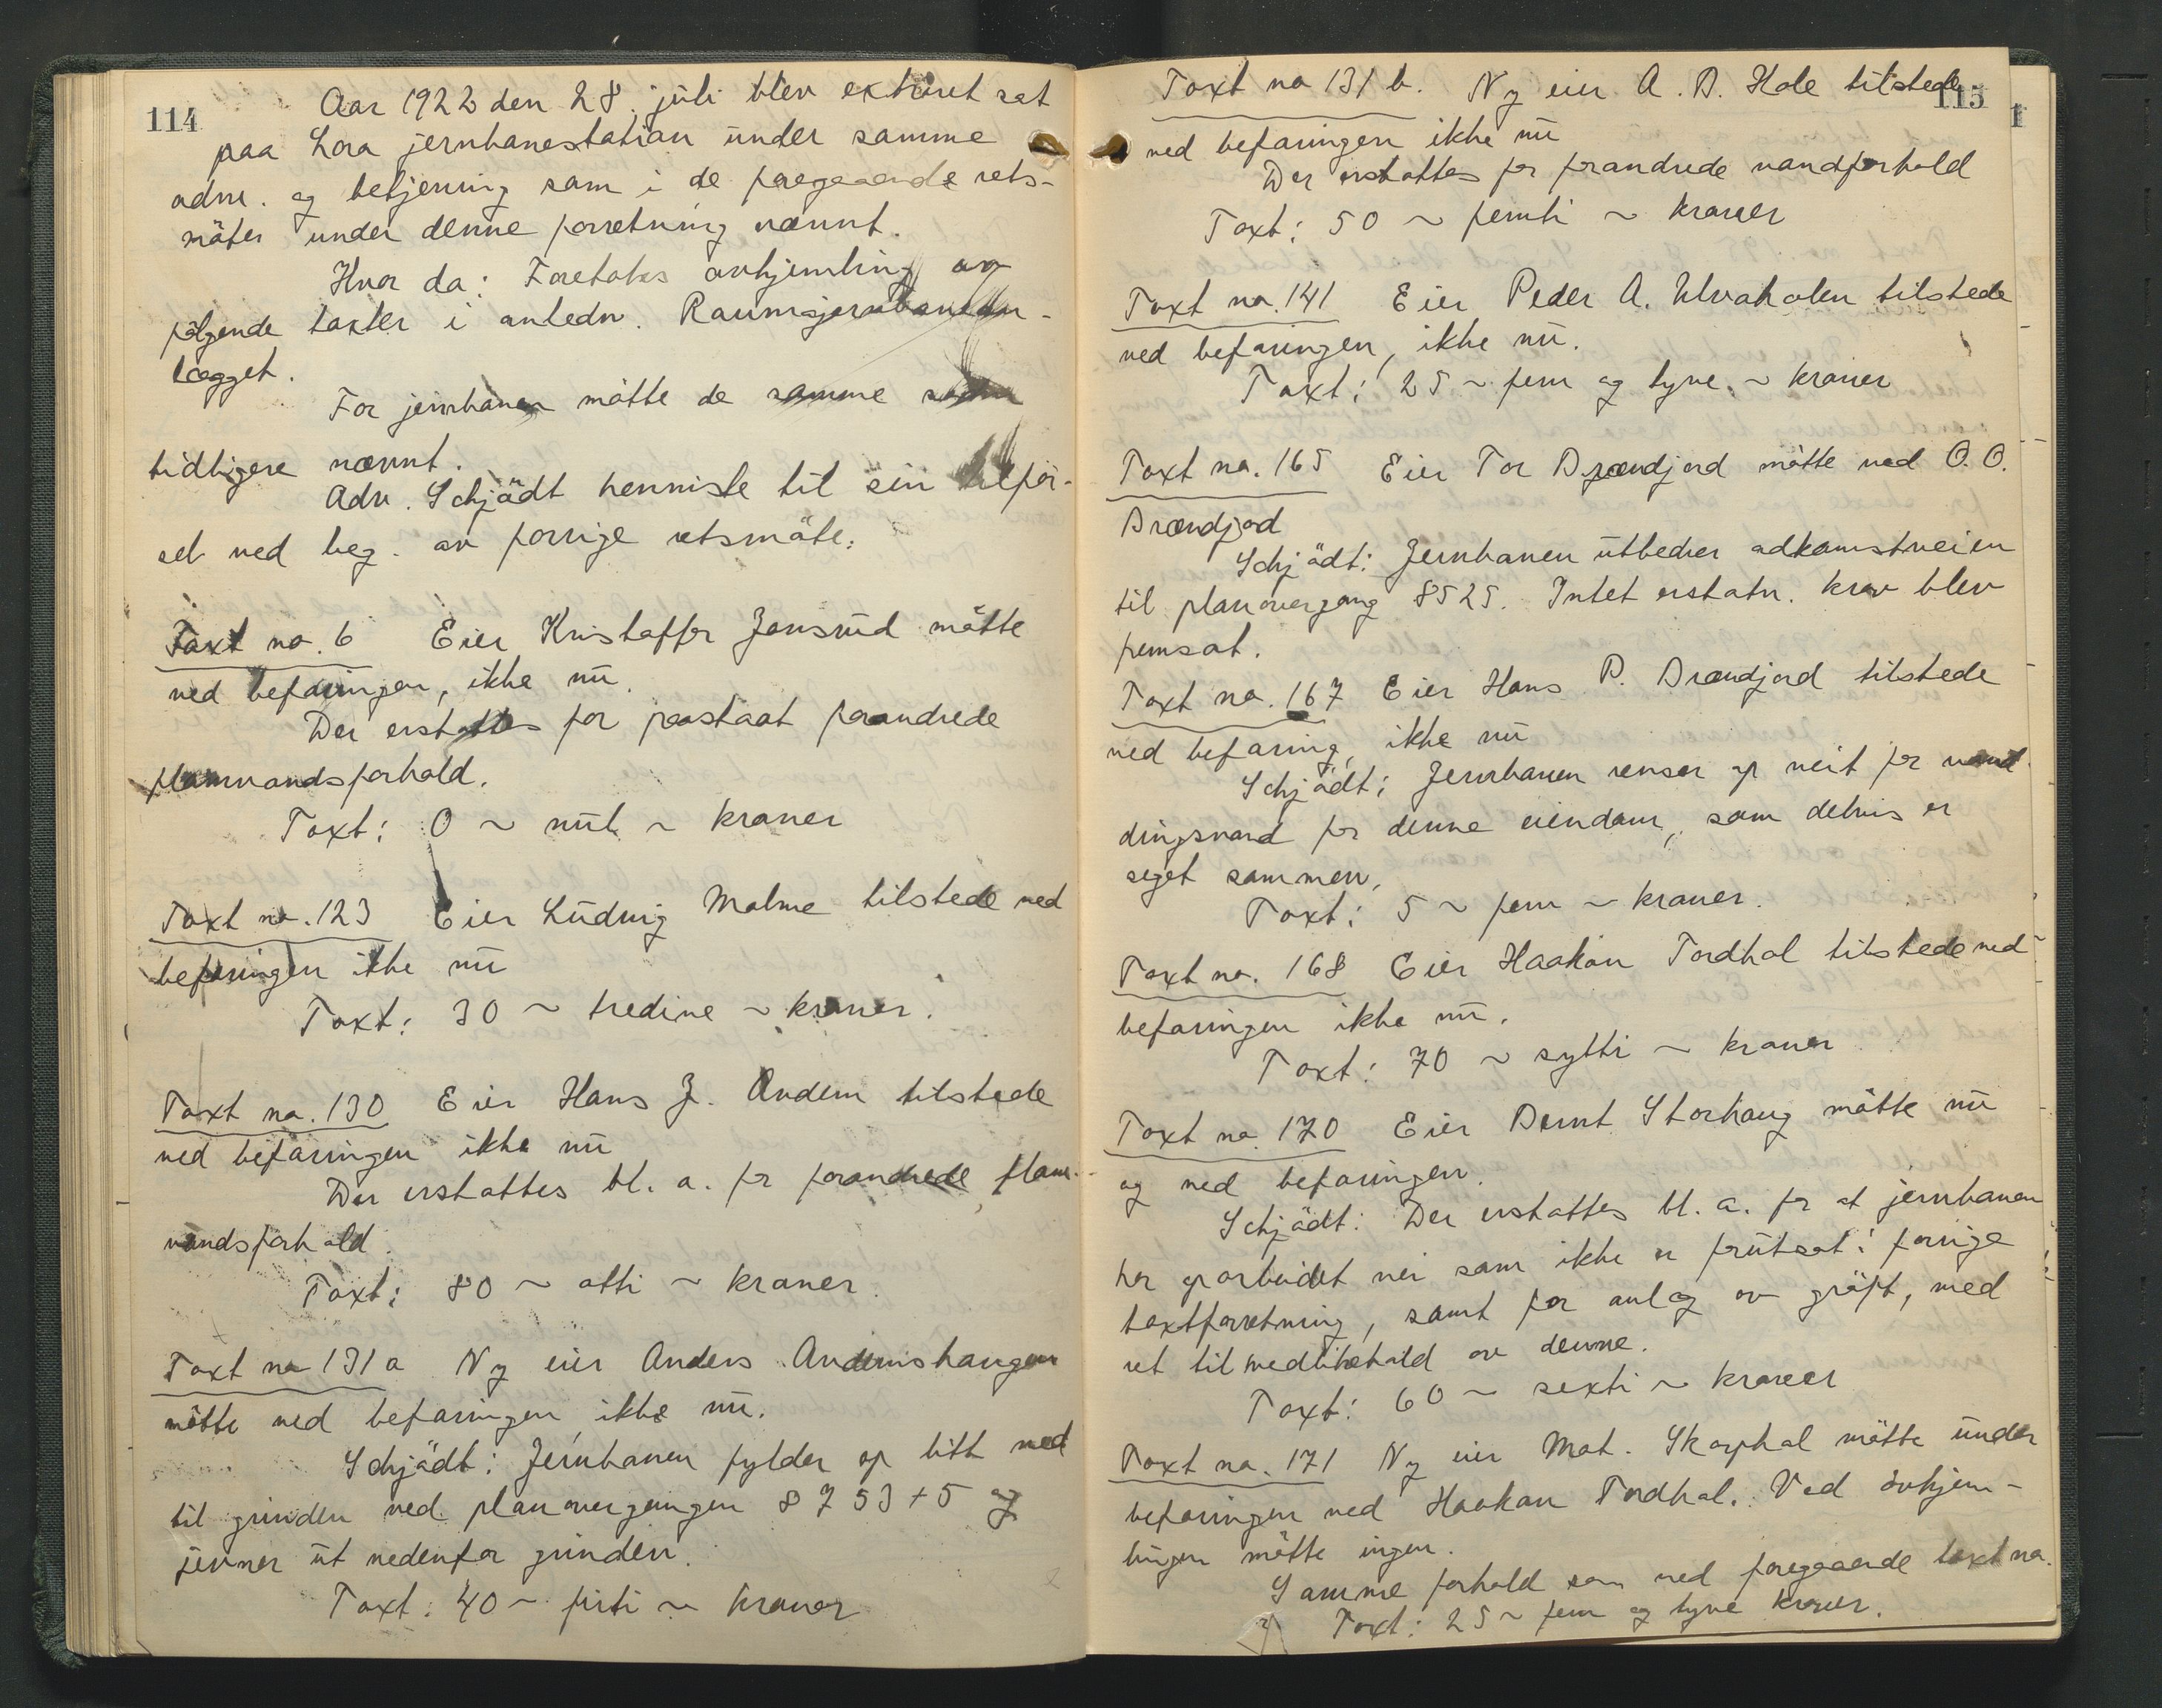 114
Aar 1922 den 28. juli blev extraret sat
paa Lora jernbanestation under samme
adm. og betjening som i de foregaaende rets-
møter under denne forretning nævnt.
Hvor da: Foretokes avhjemling av
følgende taxter i anledn. Raumajernbanean-
lægget.
For jernbanen møtte de samme som
tidligere nævnt.
Adv. Schjödt henviste til sin tilför-
sel ved beg. av forrige retsmøte.
Taxt no. 6 Eier Kristoffer Jonsrud møtte
ved befaringen, ikke nu.
Der erstattes for paastaat forandrede
flomvandsforhold.
Taxt: 0 ~ nul ~ kroner
Taxt no. 123 Eier Ludvig Malme tilstede ved
befaringen ikke nu
Taxt: 30 ~ tredive ~ kroner.
Taxt no. 130 Eier Hans J. Andem tilstede
ved befaringen ikke nu
Der erstattes bl. a. for forandrede flom-
vandsforhold.
Taxt: 80 ~ otti ~ kroner.
Taxt no 131 a Ny eier Anders Andemshaugen
møtte ved befaringen ikke nu.
Schjödt: Jernbanen fylder op litt ved
til grinden ved planovergangen 8753 + 5 og
jevner ut nedenfor grinden.
Taxt: 40 ~ firti ~ kroner
115
Taxt no 131 b. Ny eier A. B. Hole tilstede
ved befaringen ikke nu
Der erstattes for forandrede vandforhold
Taxt: 50 ~ femti ~ kroner
Taxt no. 141 Eier Peder A. Ulvaholen tilstede
ved befaringen, ikke nu.
Taxt: 25 ~ fem og tyve ~ kroner
Taxt no. 165 Eier Tor Brændjord møtte ved O. O.
Brændjord
Schjödt: Jernbanen utbedrer adkomstveien
til planovergang 8525. Intet erstatn. krav blev
fremsat.
Taxt no. 167 Eier Hans P. Brændjord tilstede
ved befaring, ikke nu
Schjödt: Jernbanen renser op veit for vand
dingsvand for denne eiendom, som delvis er
seget sammen.
Taxt: 5 ~ fem ~ kroner.
Taxt no. 168 Eier Haakon Tordhol tilstede ved
befaringen ikke nu.
Taxt: 70 ~ sytti ~ kroner
Taxt no 170 Eier Bernt Storhaug møtte nu
og ved befaringen.
Schjödt: Der erstattes bl. a. for at jernbanen
har oparbeidet vei som ikke er forutsat i forrige
taxtforretning, samt for anlæg av grøft, med
ret til vedlikehold av denne.
Taxt: 60 ~ sexti ~ kroner
Taxt no. 171 Ny eier Mat. Skarphol møtte under
befaringen ved Haakon Tordhol. Ved avhjem-
lingen møtte ingen.
Samme forhold som ved foregaaende taxt no.
Taxt: 25 ~ fem og tyve kroner.